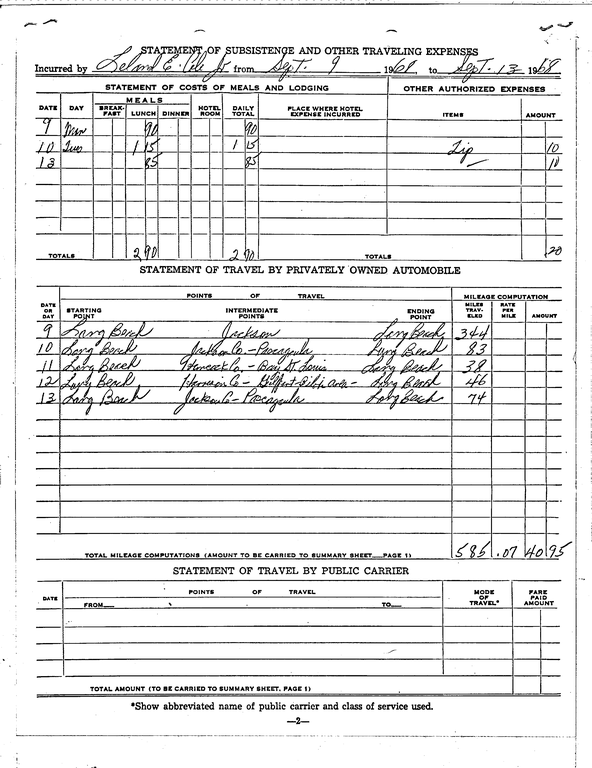 STATEMENT OF SUBSISTENCE AND OTHER TRAVELING EXPENSES
Incurred by Leland E. Cole Jr from Sept. 9 1968, to Sept. 13 1968
STATEMENT OF COSTS OF MEALS AND LODGING OTHER AUTHORIZED EXPENSES
MEALS
DATE DAY BREAK-FAST LUNCH DINNER HOTEL ROOM DAILY TOTAL PLACE WHERE HOTEL EXPENSE INCURRED ITEMS AMOUNT
9 Mon 90 90
10 Tues 1 15 1 15 Tip 10
13 85 85 10
TOTALS 2 90 2 90 TOTALS 20
STATEMENT OF TRAVEL BY PRIVATELY OWNED AUTOMOBILE
POINTS OF TRAVEL MILEAGE COMPUTATION
DATE OR DAY STARTING POINT INTERMEDIATE POINTS ENDING POINT MILES TRAV-ELED RATE PER MILE AMOUNT
9 Long Beach Jackson Long Beach 344
10 Long Beach Jackson Co - Pascagoula Long Beach 83
11 Long Beach Hancock Co. - Bay St. Louis Long Beach 38
12 Long Beach Harrison Co - Gulfport - Biloxi area - Long Beach 46
13 Long Beach Jackson Co - Pascagoula Long Beach 74
TOTAL MILEAGE COMPUTATIONS (AMOUNT TO BE CARRIED TO SUMMARY SHEET PAGE 1) 585 .07 40 95
STATEMENT OF TRAVEL BY PUBLIC CARRIER
DATE POINTS OF TRAVEL MODE OF TRAVEL* FARE PAID AMOUNT
FROM TO
TOTAL AMOUNT (TO BE CARRIED TO SUMMARY SHEET, PAGE 1)
*Show abbreviated name of public carrier and class of service used.
—2—